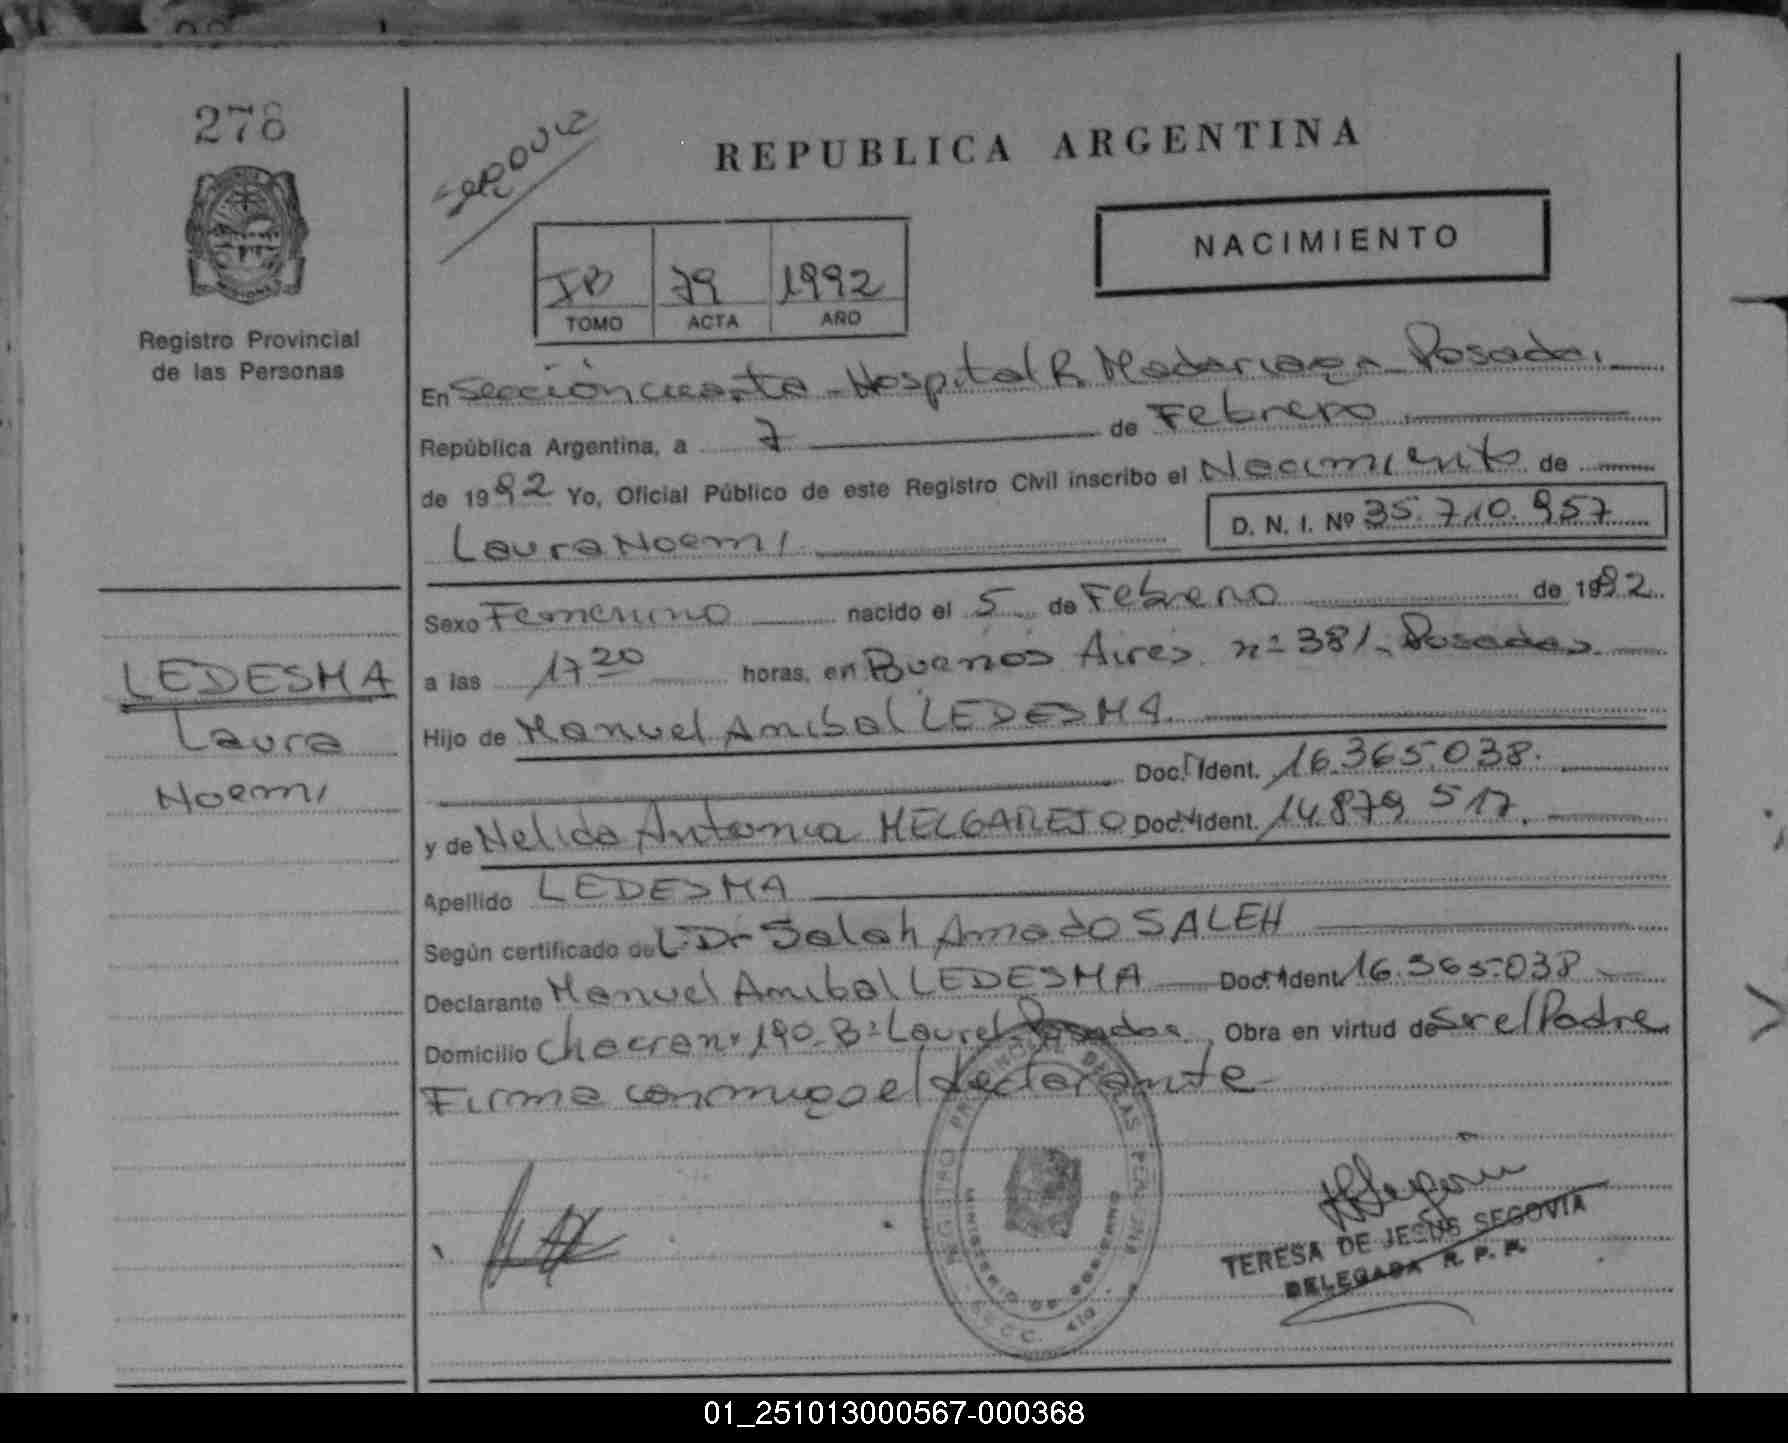 278
REPUBLICA ARGENTINA
NACIMIENTO
IB 79 1992
TOMO ACTA AÑO
Registro Provincial
de las Personas
En Sección cuarta - Hospital R Madariaga Posadas
República Argentina, a 7 de Febrero
de 1992 Yo, Oficial Público de este Registro Civil inscribo el Nacimiento de
D. N. I. Nº 35.710.957
Laura Noemi
Sexo Femenino nacido el 5 de Febrero de 1992
a las 17 20 horas, en Buenos Aires nº 381. Posadas
Hijo de Manuel Anibal LEDESMA
Doc. Ident. 16.365.038.
y de Nelida Antonia MELGAREJO Doc. Ident. 14.879.517.
Apellido LEDESMA
Según certificado del Dr Salah Amado SALEH
Declarante Manuel Anibal LEDESMA Doc. Ident. 16.365.038
Domicilio Chacra nº 190. Bº Laurel Posadas, Obra en virtud de Ser el Padre
Firma conmigo el declarante
LEDESMA
Laura
Noemi
REGISTRO PROVINCIAL DE LAS PERSONAS
MINISTERIO DE GOBIERNO
TERESA DE JESUS SEGOVIA
DELEGADA R. P. P.
01_251013000567-000368